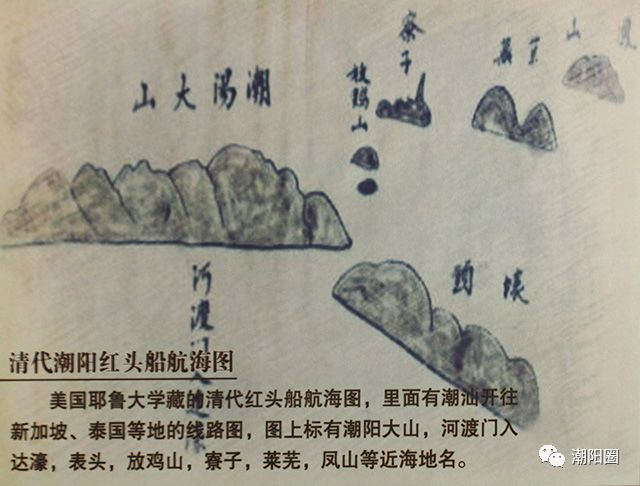 潮陽大山
寮子
放鷄山
河渡門入
清代潮阳红头船航海图
美国耶鲁大学藏的清代红头船航海图，里面有潮汕开往
新加坡、泰国等地的线路图，图上标有潮阳大山，河渡门入
达濠，表头，放鸡山，寮子，莱芜，凤山等近海地名。
潮阳圈